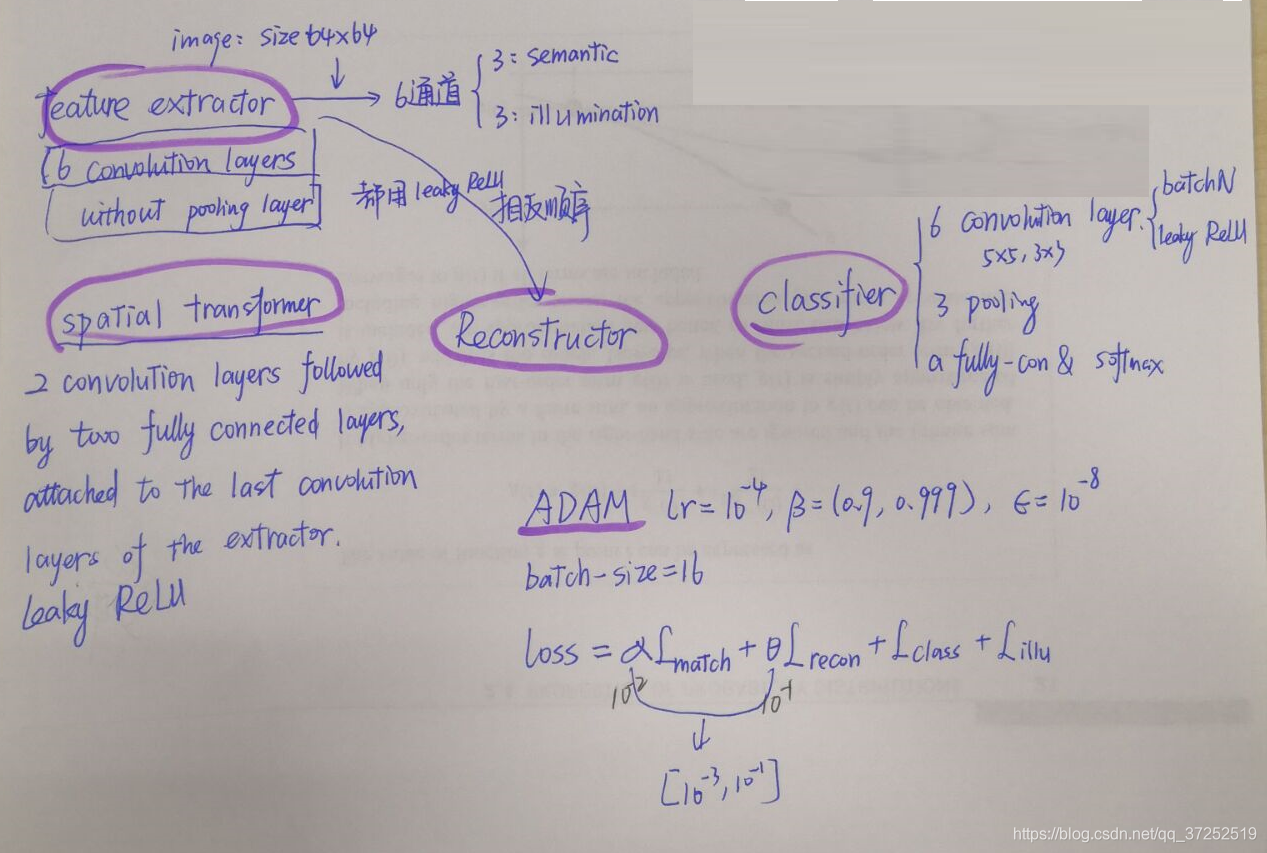 image: size 64x64
feature extractor
6通道
3: semantic
3: illumination
6 convolution layers
without pooling layer
都用 leaky ReLU
相反顺序
spatial transformer
2 convolution layers followed
by two fully connected layers,
attached to the last convolution
layers of the extractor.
Leaky ReLU
Reconstructor
classifier
6 convolution layer.
5x5, 3x3
batchN
leaky ReLU
3 pooling
a fully-con & softmax
ADAM lr=10^-4, β=(0.9, 0.999), ε=10^-8
batch-size=16
loss = αL_match + θL_recon + L_class + L_illu
10^-2 10^-1
[10^-3, 10^-1]
https://blog.csdn.net/qq_37252519